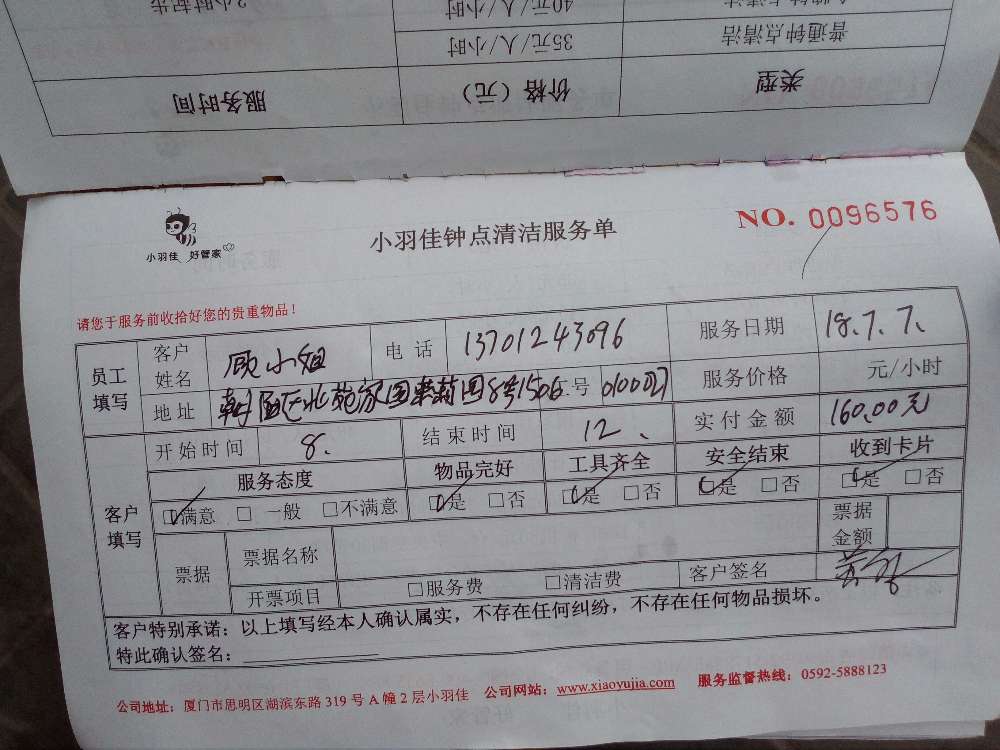 2小时起步
40元/人/小时
普通钟点清洁 35元/人/小时
类型 价格（元） 服务时间
小羽佳 好管家
小羽佳钟点清洁服务单
NO. 0096576
请您于服务前收拾好您的贵重物品！
员工填写 客户姓名 顾小姐 电话 13701243096 服务日期 18.7.7、
地址 朝阳区北苑家园 园8号1506 号 服务价格 元/小时
客户填写 开始时间 8. 结束时间 12、 实付金额 160.00元
服务态度 物品完好 工具齐全 安全结束 收到卡片
☑满意 □一般 □不满意 ☑是 □否 ☑是 □否 ☑是 □否 ☑是 □否
票据 票据名称 票据金额
开票项目 □服务费 □清洁费 客户签名
客户特别承诺：以上填写经本人确认属实，不存在任何纠纷，不存在任何物品损坏。
特此确认签名：
公司地址：厦门市思明区湖滨东路319号A幢2层小羽佳 公司网站：www.xiaoyujia.com 服务监督热线：0592-5888123